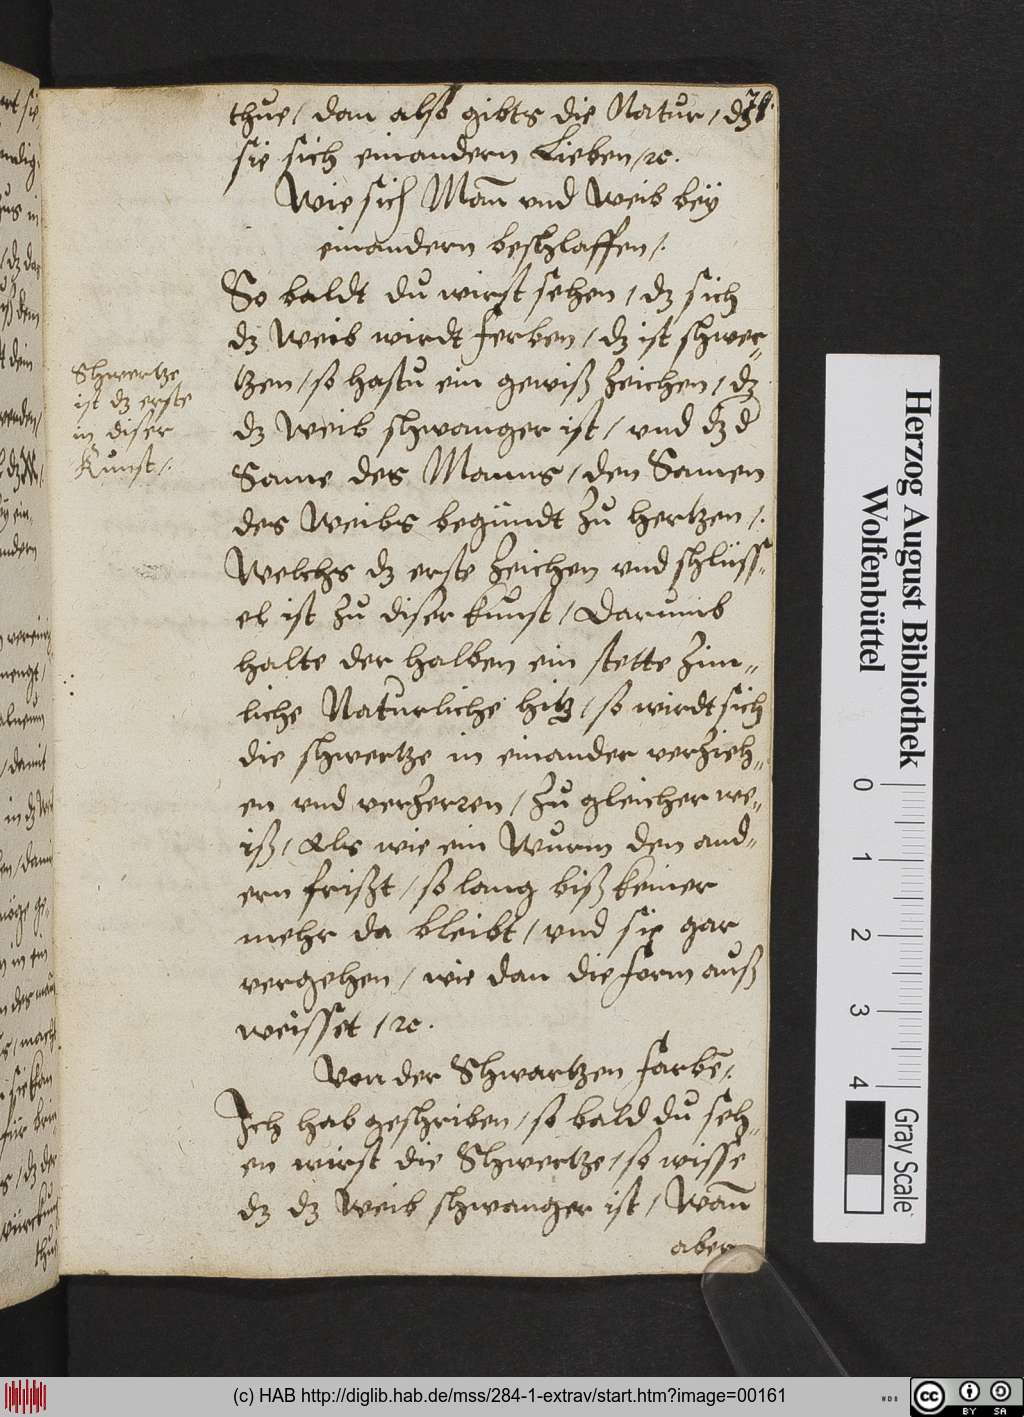 78.
thue / dan also gibts die Natur / dz
sie sich einandern Lieben / ꝛc.
Wie sich Man̄ vnd Weib beÿ
einandern beschlaffen /.
So baldt du wirst sehen / dz sich
dz Weib wirdt ferben / dz ist schwer„
tzen / so hastu ein gewiß zeichen / dz
dz Weib schwanger ist / vnd dz d
Same des Manns / den Samen
des Weibs begündt zu hertzen /.
Welchs dz erste zeichen vnd schlüss„
el ist zu diser kunst / Darumb
halte der halben ein stette zim„
liche Naturliche hitz / so wirdt sich
die schwertze in einander verzieh„
en vnd verzerren / zu gleicher we„
iß / Als wie ein Wurm den and„
ern frißt / so lang biß keiner
mehr da bleibt / vnd sie gar
vergehen / wie dan die form auß
weisset / ꝛc.
Von der Schwartzen farbē /.
Ich hab geschriben / so bald du seh„
en wirst die Schwertze / so wisse
dz dz Weib schwanger ist / Wan̄
aber
Schwertze
ist dz erste
in diser
Kunst /.
Herzog August Bibliothek
Wolfenbüttel
0 1 2 3 4
Gray Scale
(c) HAB http://diglib.hab.de/mss/284-1-extrav/start.htm?image=00161
WDB
cc BY SA